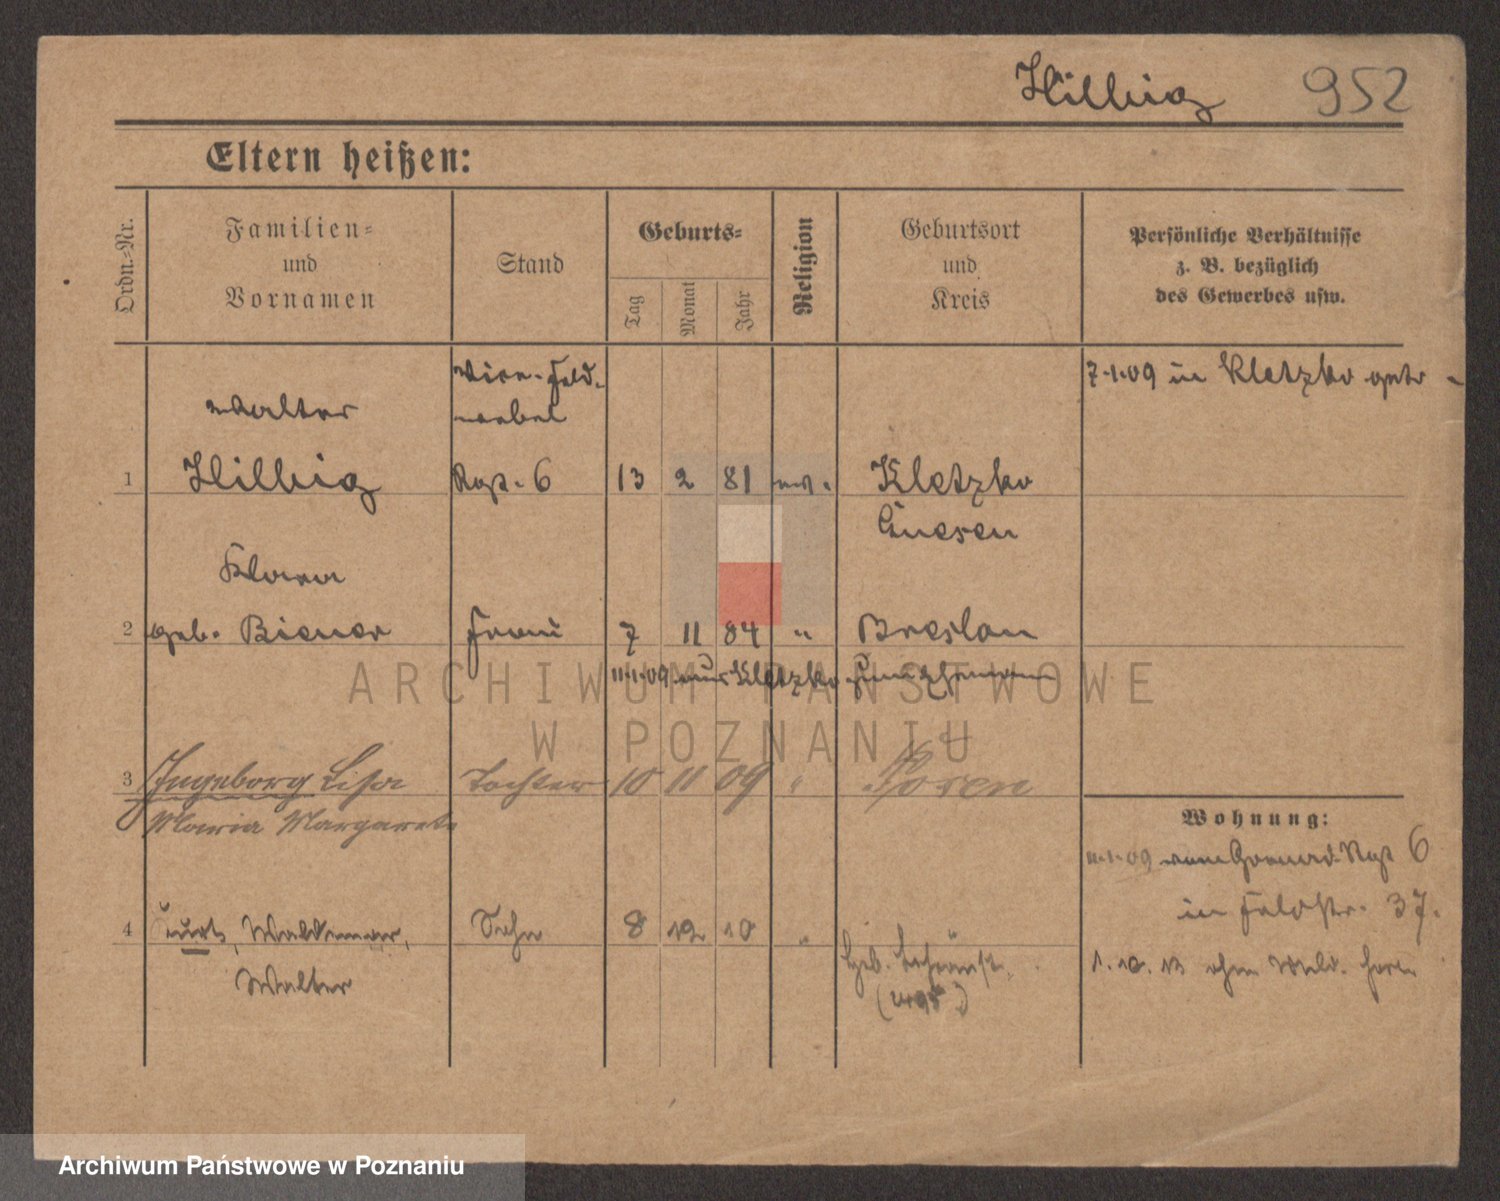 Hilbig 952
Eltern heißen:
Ordn.-Nr.
Familien-
und
Vornamen
Stand
Geburts-
Tag
Monat
Jahr
Religion
Geburtsort
und
Kreis
Persönliche Verhältnisse
z. B. bezüglich
des Gewerbes usw.
Vize-Feld-
webel
7.1.09 in Kletzko getr
Walter
1 Hilbig Rgt. 6 13 2 81 ev. Kletzko
Gnesen
Klara
2 geb. Biener Frau 7 11 84 " Breslau
11.1.09 aus Kletzko
ARCHIWUM PAŃSTWOWE
W POZNANIU
3 Ingeborg Lisa Tochter 10 11 09 " Posen
Maria Margarete
Wohnung:
11.1.09 vom Grenad. Rgt 6
in Feldstr. 37.
4 Kurt, Waldemar, Sohn 8 12 10 "
Walter
1.10.13 ohne Meld.
Archiwum Państwowe w Poznaniu